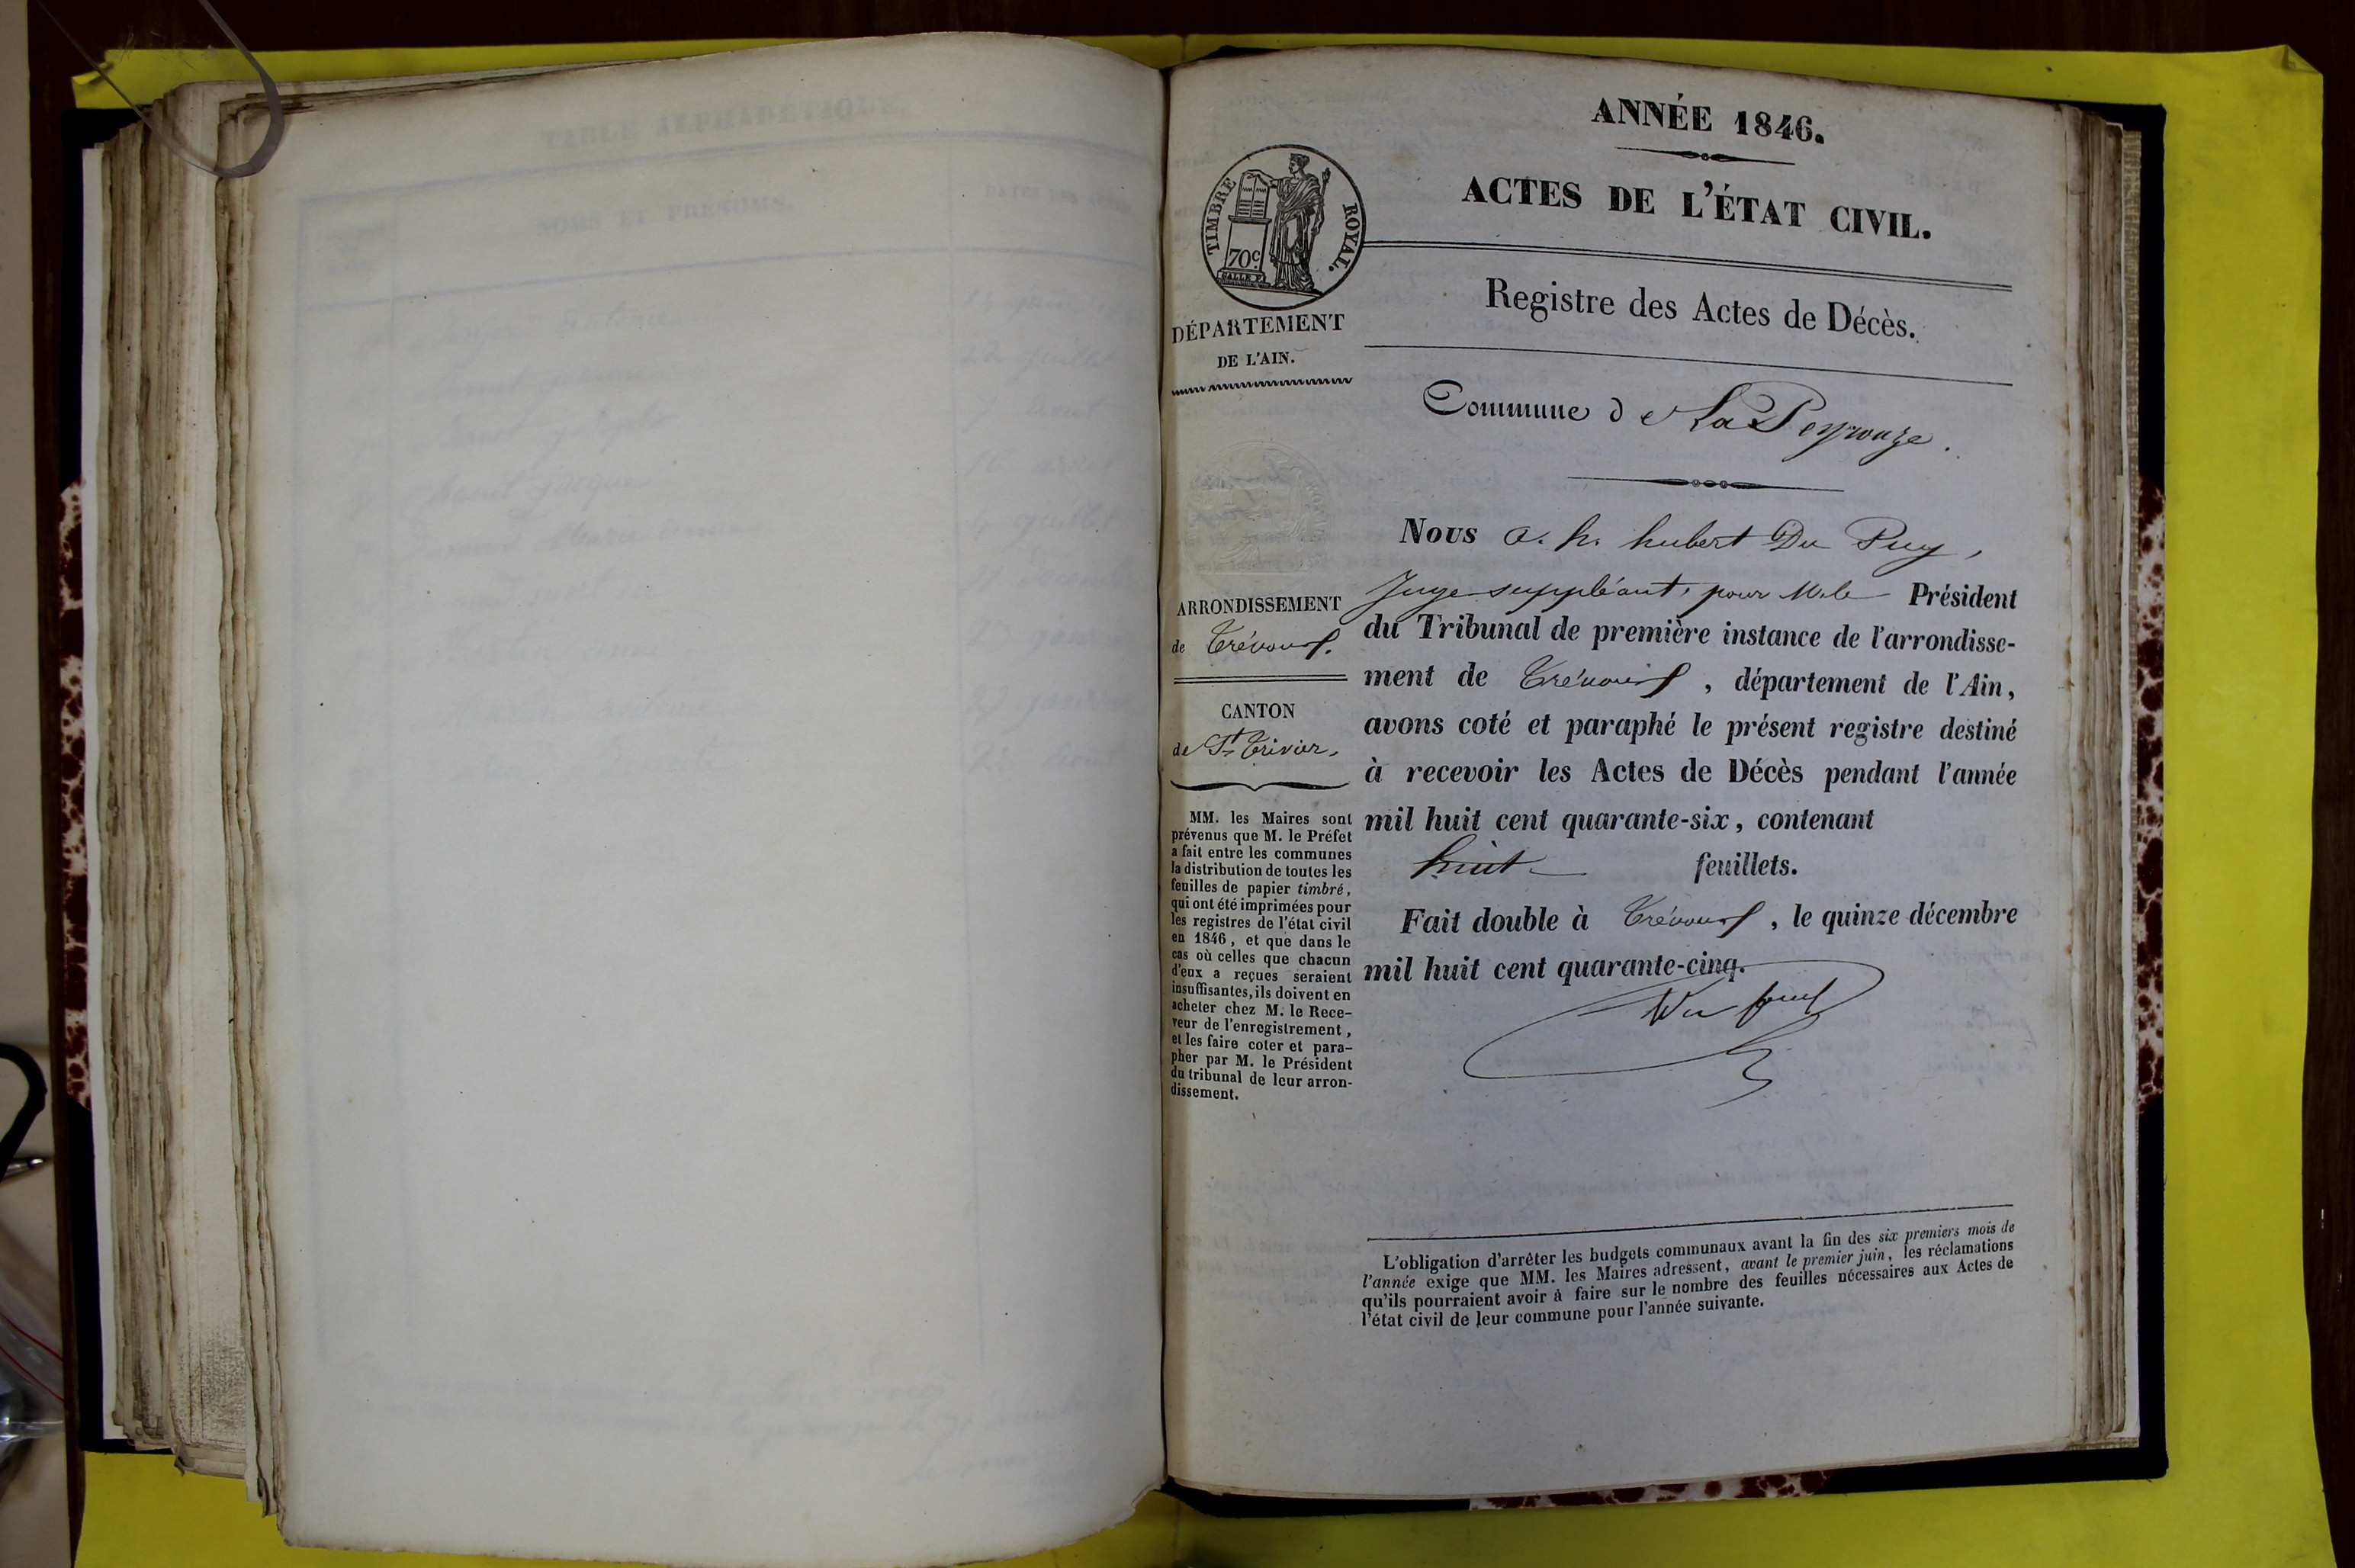 TABLE ALPHABÉTIQUE.
NOMS ET PRÉNOMS.
ANNÉE 1846.
ACTES DE L'ÉTAT CIVIL.
TIMBRE ROYAL.
70c
Registre des Actes de Décès.
DÉPARTEMENT
DE L'AIN.
Commune de La Peyrouze.
Nous a. h. hubert Du Puy,
Juge suppléant, pour M. le Président
du Tribunal de première instance de l'arrondisse-
ment de Trévoux, département de l'Ain,
avons coté et paraphé le présent registre destiné
à recevoir les Actes de Décès pendant l'année
mil huit cent quarante-six, contenant
huit feuillets.
Fait double à Trévoux, le quinze décembre
mil huit cent quarante-cinq.
ARRONDISSEMENT
de Trévoux.
CANTON
de St Trivier.
MM. les Maires sont
prévenus que M. le Préfet
a fait entre les communes
la distribution de toutes les
feuilles de papier timbré,
qui ont été imprimées pour
les registres de l'état civil
en 1846, et que dans le
cas où celles que chacun
d'eux a reçues seraient
insuffisantes, ils doivent en
acheter chez M. le Rece-
veur de l'enregistrement,
et les faire coter et para-
pher par M. le Président
du tribunal de leur arron-
dissement.
L'obligation d'arrêter les budgets communaux avant la fin des six premiers mois de
l'année exige que MM. les Maires adressent, avant le premier juin, les réclamations
qu'ils pourraient avoir à faire sur le nombre des feuilles nécessaires aux Actes de
l'état civil de leur commune pour l'année suivante.